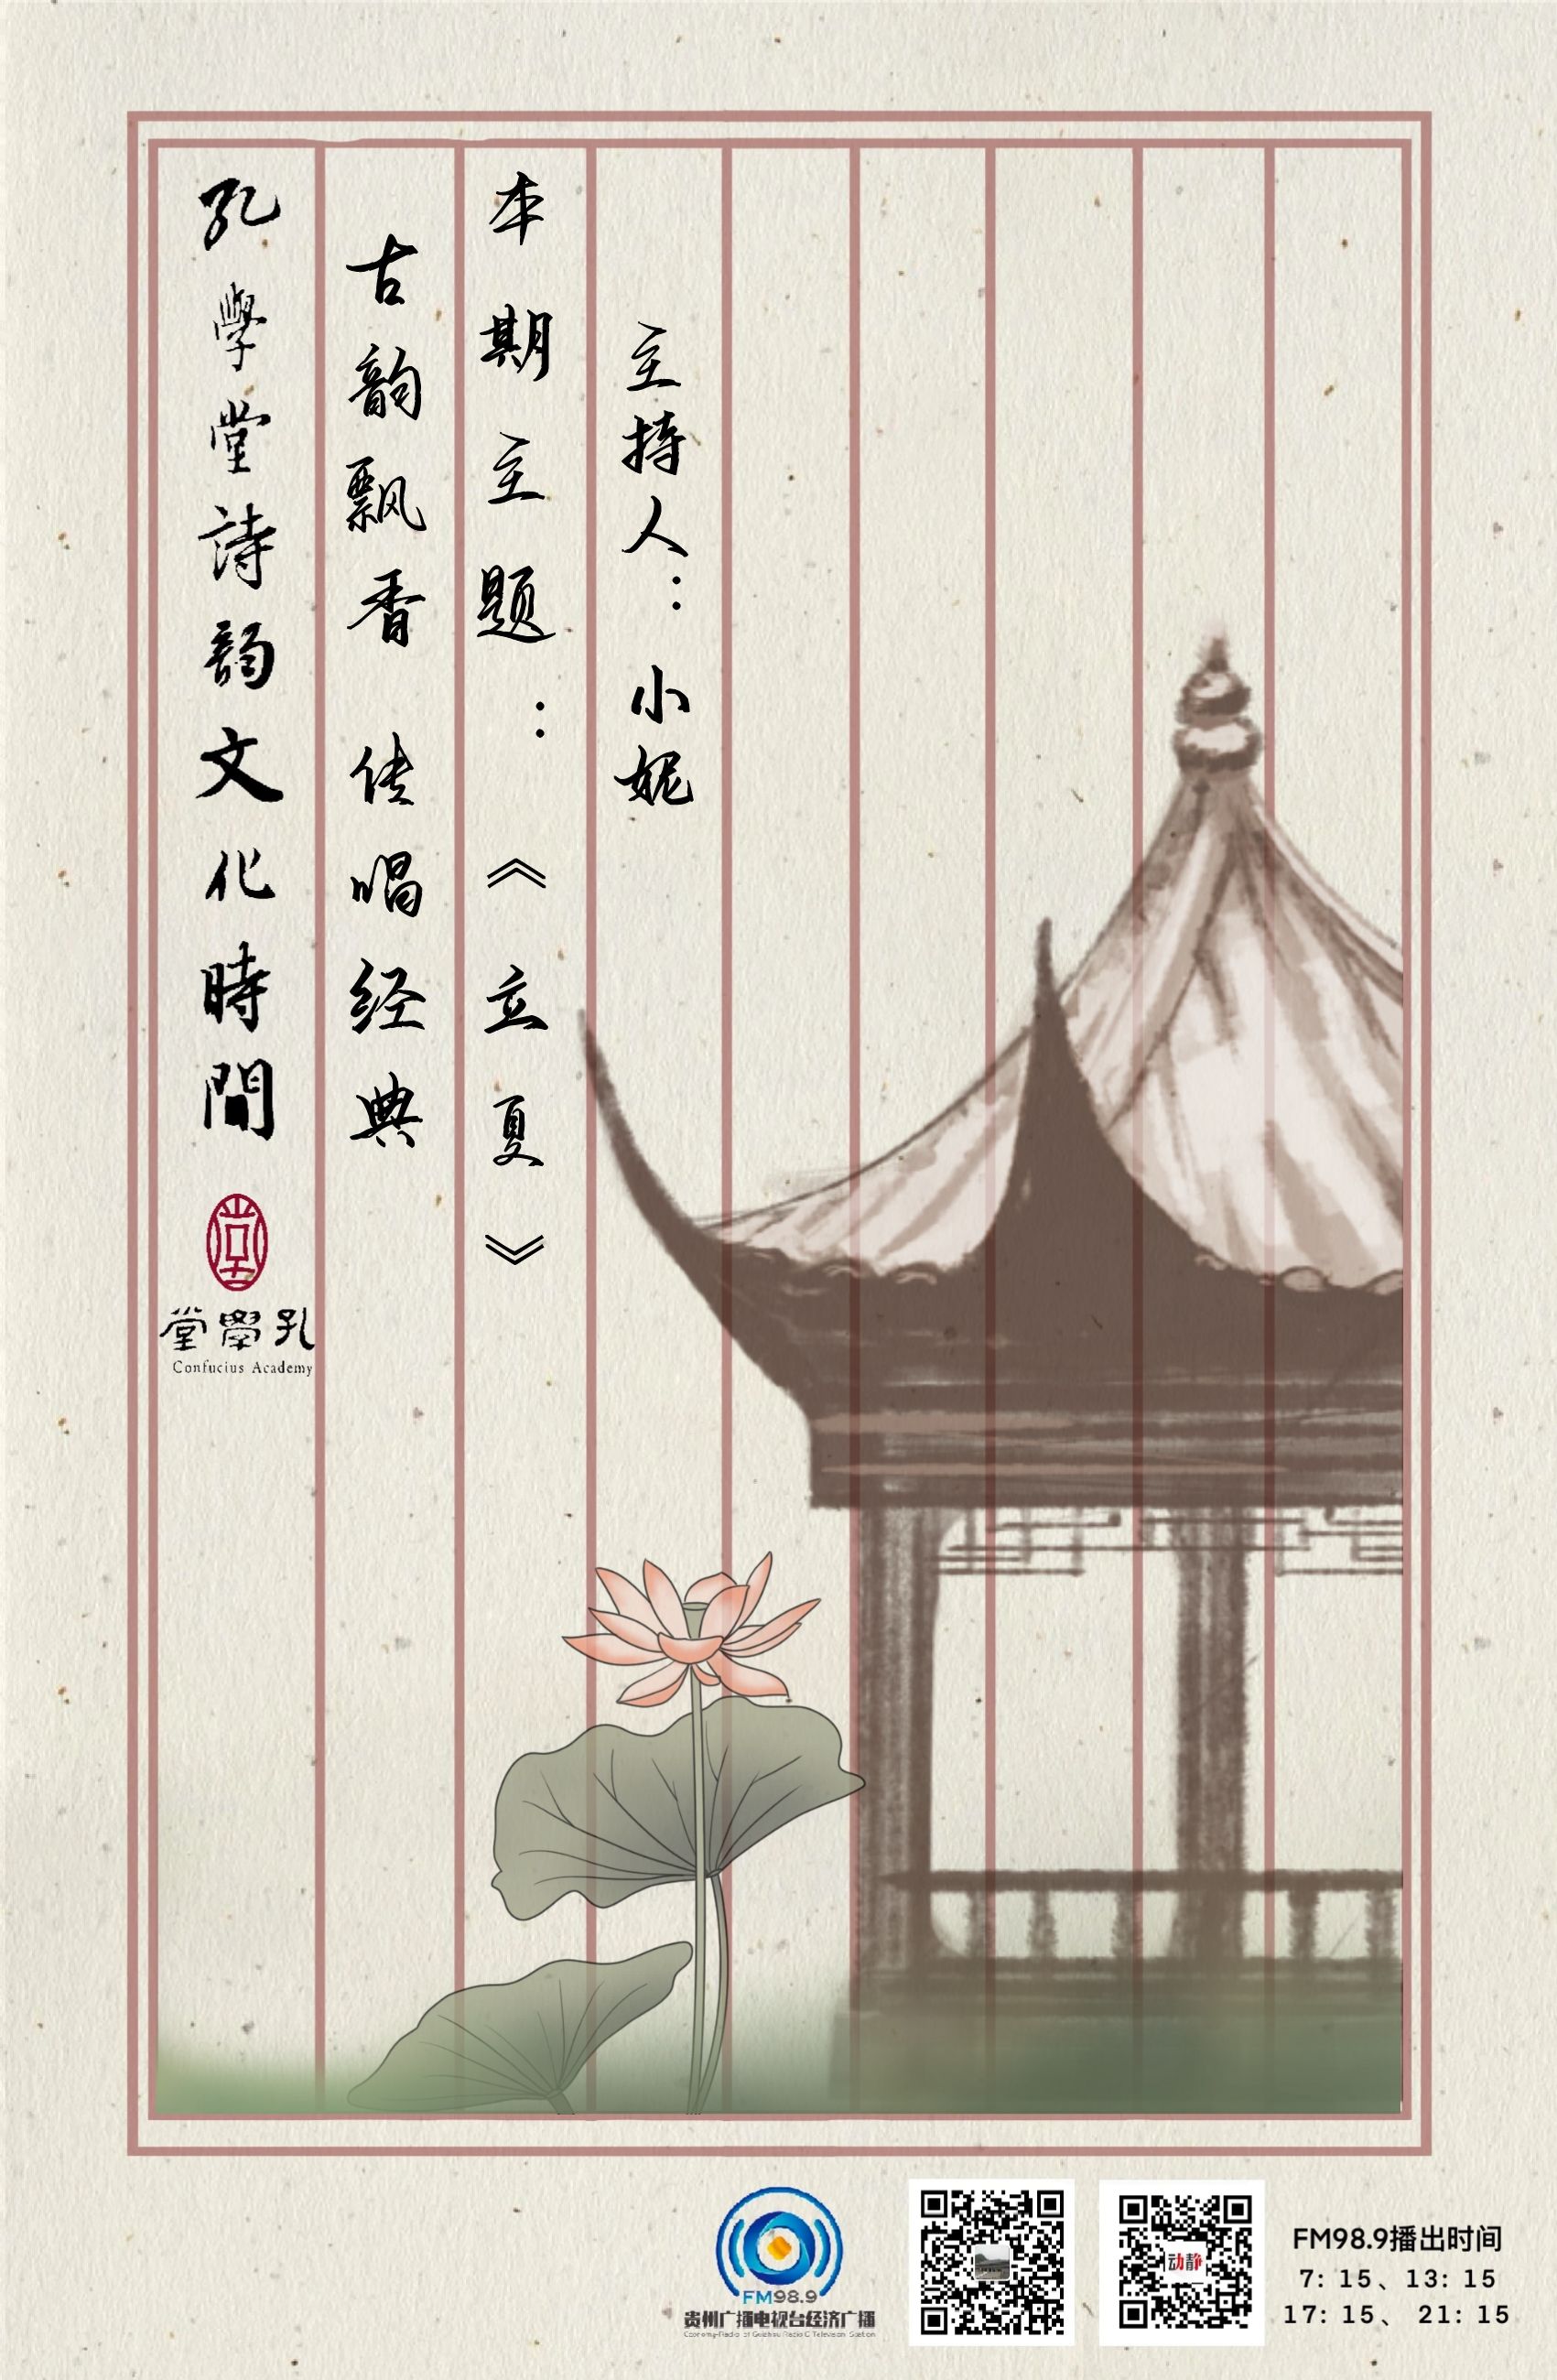 孔學堂詩韵文化時間
堂學孔
Confucius Academy
古韵飘香 传唱经典
本期主题：《立夏》
主持人：小妮
FM98.9
贵州广播电视台经济广播
动静
FM98.9播出时间
7: 15、13: 15
17: 15、 21: 15